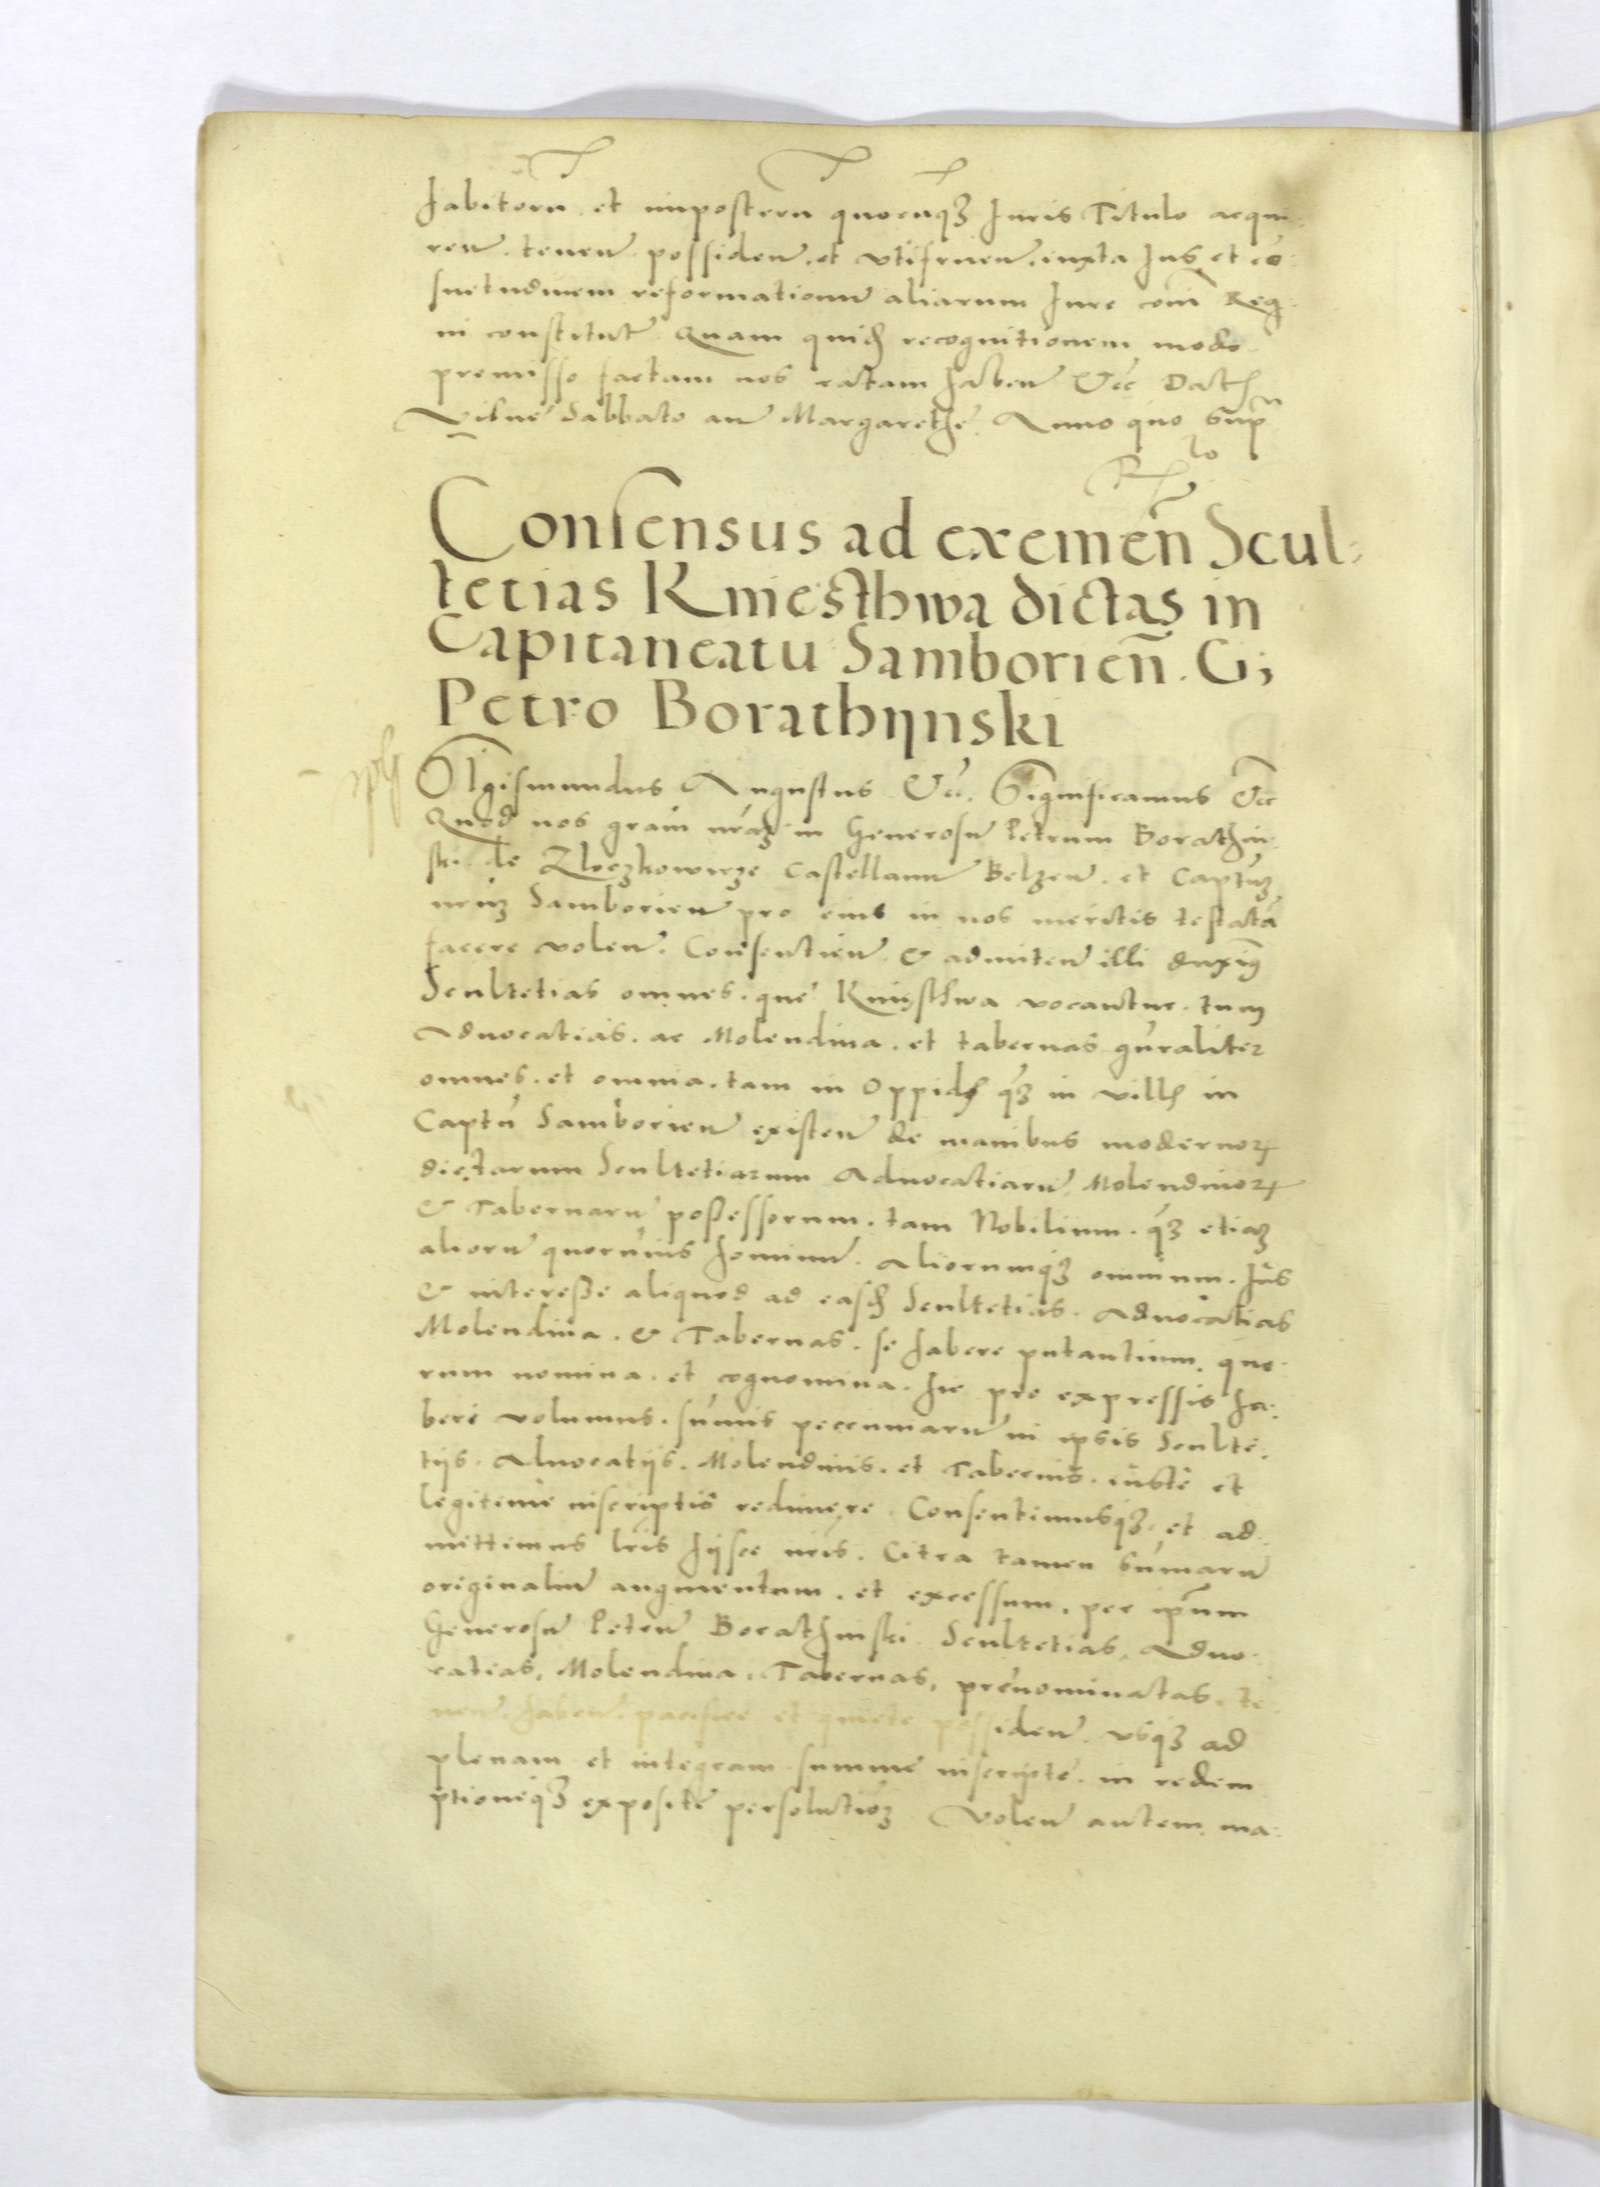 habitorũ et impostern̄ quocunqꝫ Juris Titulo acqui-
ren̄. tenen̄ possiden̄. et vtifruen̄. iuxta Jus et cõ-
suetudinem reformationũ aliarum Jure com̄ Reg-
ni constitut̄. Quam quid̄ recognitionem modo
premisso factam nos ratam haben̄ &c̄ Dat̄
Vilnę Sabbato an̄ Margarethę. Anno quo sup̄
Consensus ad exemen̄ Scul-
tetias Kniesthwa dictas in
Capitaneatu Samborien̄. G;
Petro Borathijnski
Sigismundus Augustus &c. Significamus &c
Quod nos gratā nr̄aꝫ in Generosũ Petrum Borathin-
ski de Zloczkowicze Castellanũ Belzen̄. et Captūꝫ
nr̄ūꝫ Samborien̄ pro eius in nos meritis testatā
facere volen̄. Consentien̄ & admitten̄ illi duximꝰ
Scultetias omnes. quę Knięsthwa vocantur. tum
Advocatias. ac Molendina. et tabernas gn̄raliter
omnes. et omnia. tam in Oppid̄ qꝫ in vill̄ in
Captū Samborien̄ existen̄ de manibus modernoꝝ
dictarum Scultetiarum Advocatiarũ Molendinoꝝ
& Tabernarũ possessorum. tam Nobilium. qꝫ etiaꝫ
aliorũ quorumvis hominũ. Aliorumqꝫ omnium. Jus
& interesse aliquod ad easd̄ Scultetias. Advocatias
Molendina. & Tabernas. se habere putantium. quo-
rum nomina. et cognomina. hic pro expressis ha-
beri volumus. sum̄is pecuniarũ in ipsis Sculte-
tijs. Advocatijs. Molendinis. et Tabernis. iuste et
legitime inscriptis redimere. Consentimusqꝫ. et ad-
mittimus lr̄is hijsce nr̄is. Citra tamen sum̄arũ
originaliũ augmentum. et excessum. per ip̄um
Generosũ Petrũ Borathinski. Scultetias, Advo-
catias, Molendina, Tabernas, prenominatas. te-
nen̄. haben̄. pacifice et quiete possiden̄. vsqꝫ ad
plenam et integram summę inscriptę. in redem-
ptioneqꝫ expositę persolutiōꝫ Volen̄ autem ma-